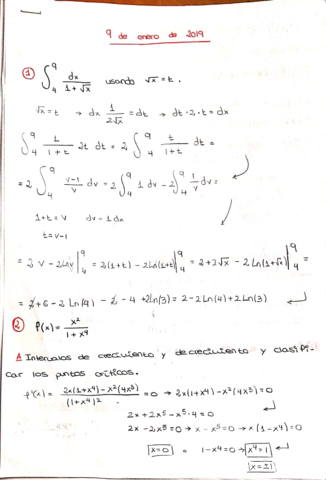 9 de enero de 2019
① ∫₄⁹ dx/(1+√x) usando √x = t.
√x = t → dx 1/(2√x) = dt → dt·2·t = dx
∫₄⁹ 1/(1+t) 2t dt = 2 ∫₄⁹ t/(1+t) dt =
= 2 ∫₄⁹ (v-1)/v dv = 2 ∫₄⁹ 1 dv - 2 ∫₄⁹ 1/v dv =
1+t = v dv = 1dx
t = v-1
= 2v - 2Ln v |₄⁹ = 2(1+t) - 2Ln(1+t) |₄⁹ = 2+2√x - 2Ln(1+√x) |₄⁹ =
= 2+6-2Ln(4) - 2-4+2Ln(3) = 2-2Ln(4)+2Ln(3)
② f(x) = x²/(1+x⁴)
A Intervalos de crecimiento y decrecimiento y clasifi-
car los puntos críticos.
f'(x) = (2x(1+x⁴) - x²(4x³))/(1+x⁴)² = 0 → 2x(1+x⁴) - x²(4x³) = 0
2x+2x⁵-x⁵·4 = 0
2x-2x⁵ = 0 → x-x⁵ = 0 → x(1-x⁴) = 0
x=0 o 1-x⁴=0 → x⁴=1
x=±1